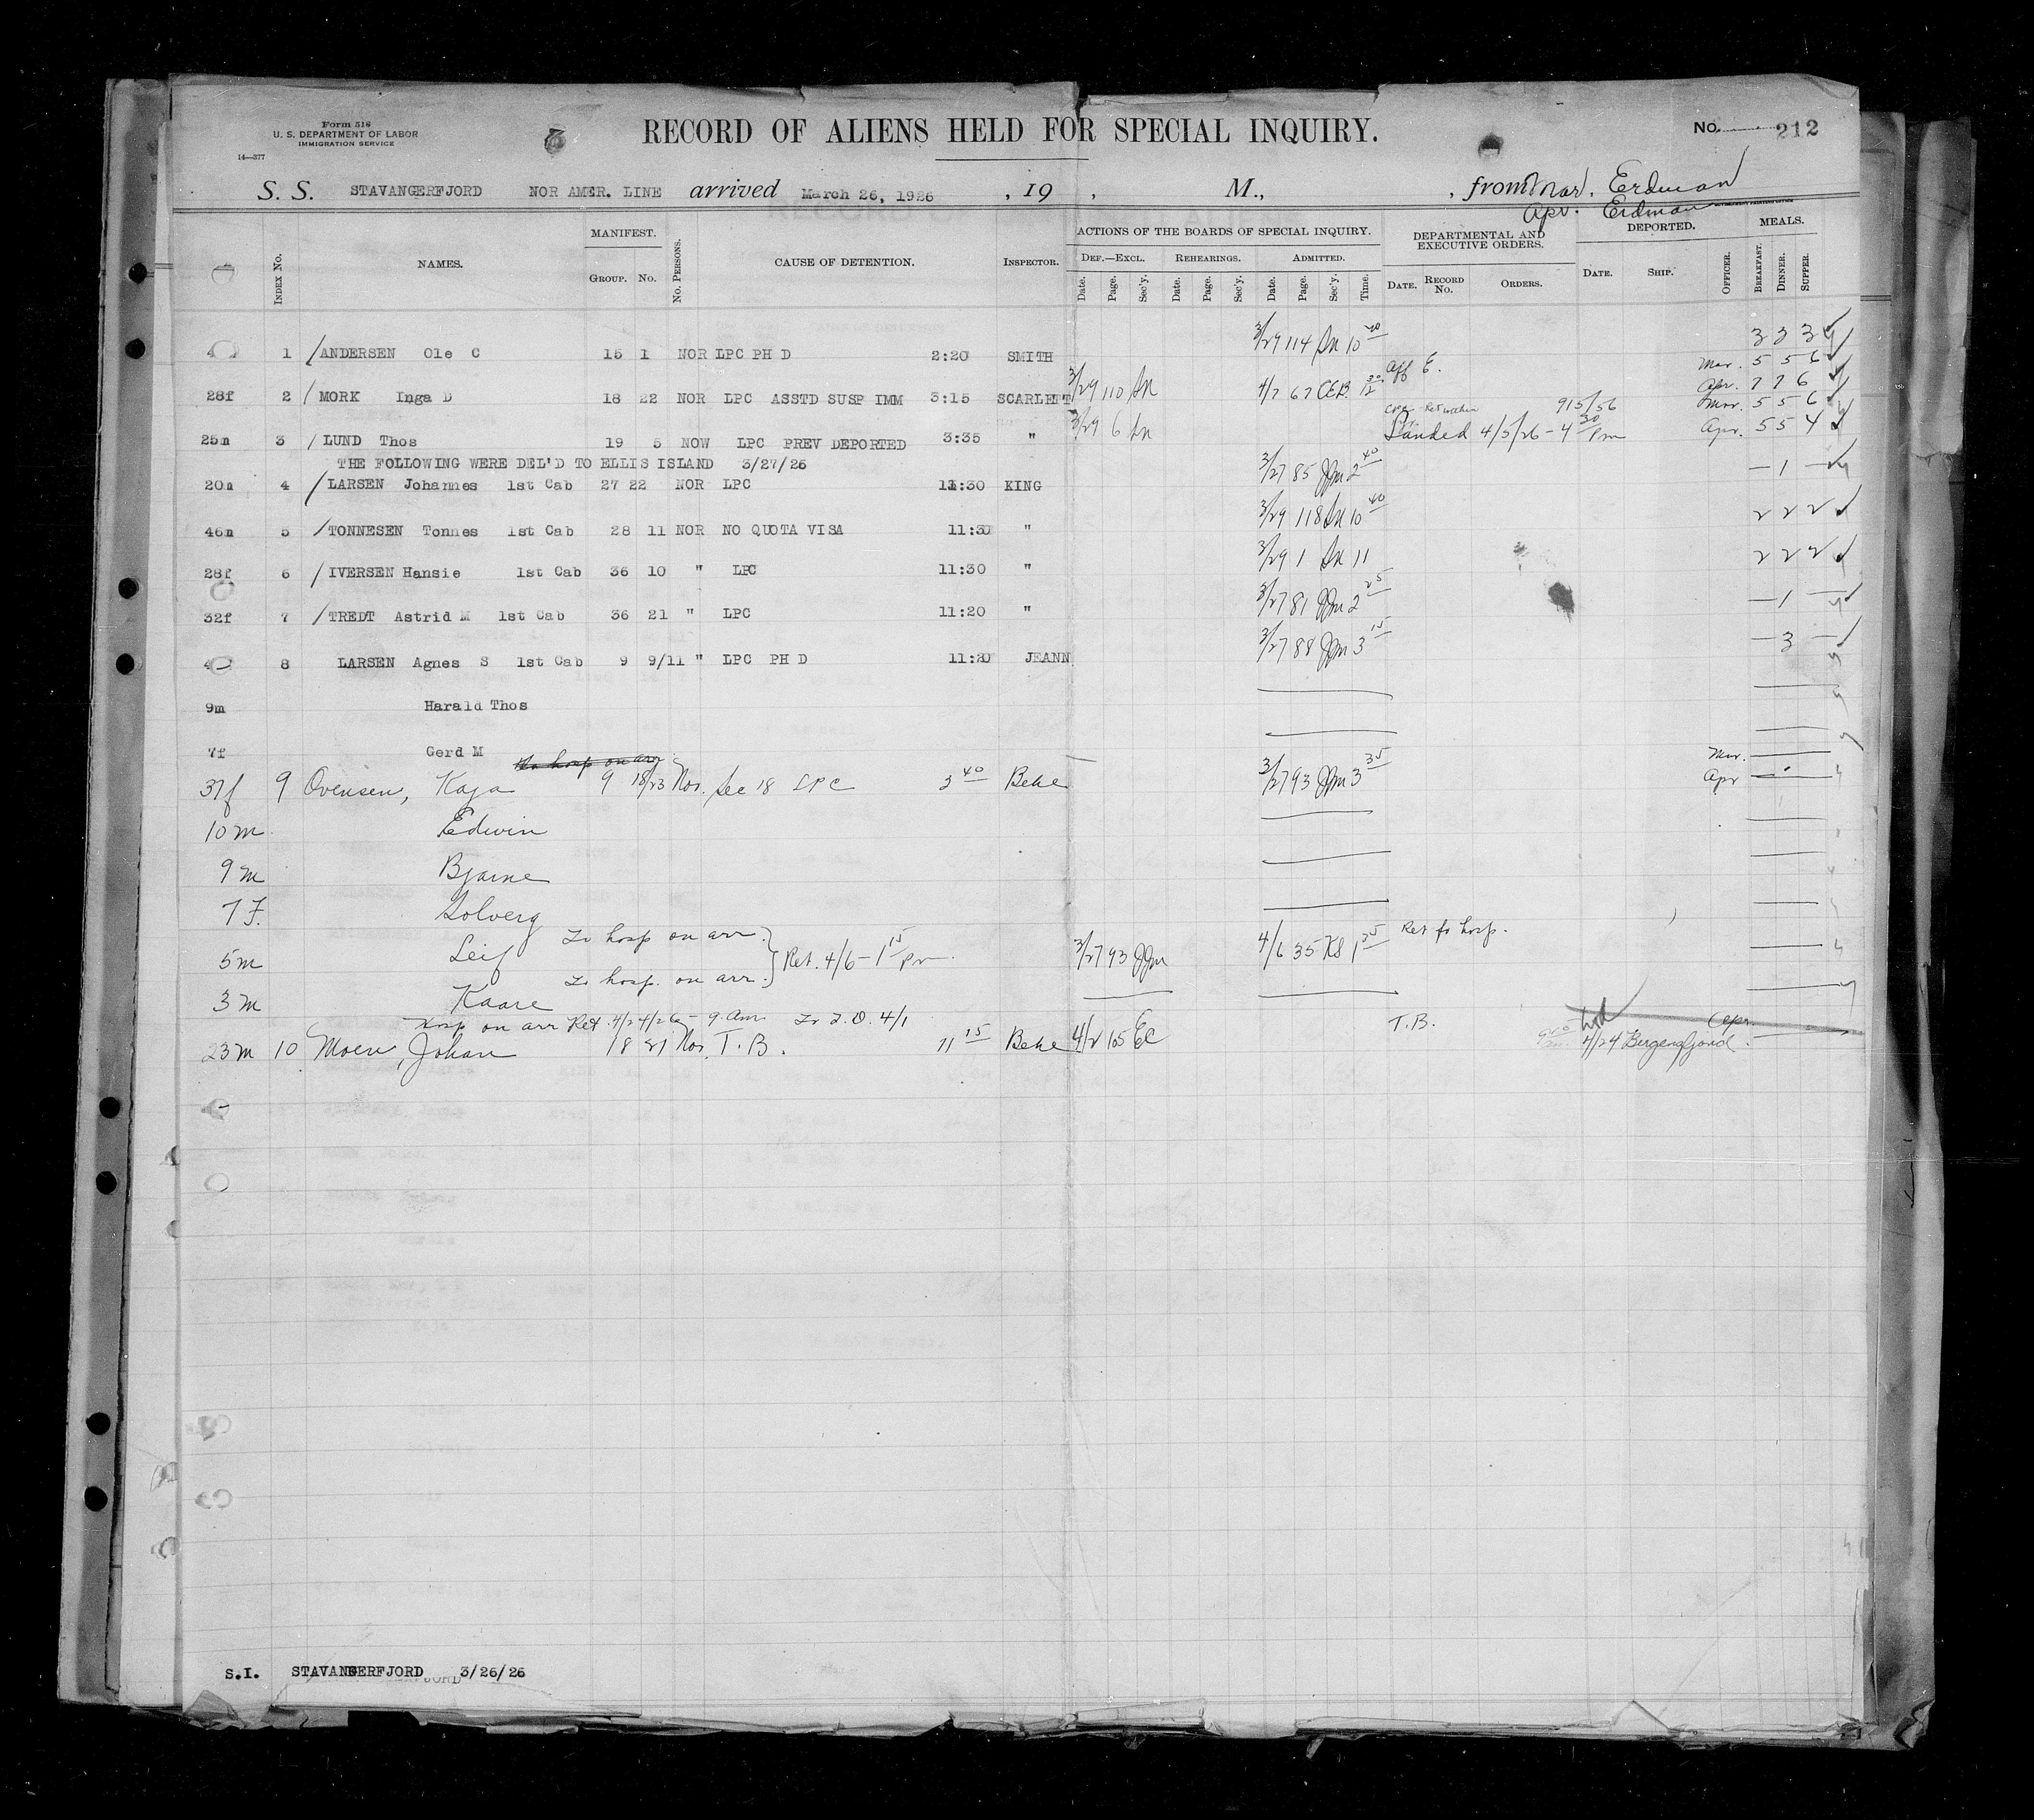 Form 516
U. S. DEPARTMENT OF LABOR
IMMIGRATION SERVICE
14—377
RECORD OF ALIENS HELD FOR SPECIAL INQUIRY.
No. 212
S. S. STAVANGERFJORD NOR AMER. LINE arrived March 26, 1926 , 19 , M., , from Mar. Erdman
Apr. Erdman
INDEX No. NAMES. MANIFEST. GROUP. NO. NO. PERSONS. CAUSE OF DETENTION. INSPECTOR.
ACTIONS OF THE BOARDS OF SPECIAL INQUIRY. DEF.—EXCL. REHEARINGS. ADMITTED.
Date. Page. Sec'y. Date. Page. Sec'y. Date. Page. Sec'y. Time.
DEPARTMENTAL AND EXECUTIVE ORDERS. DATE. RECORD No. ORDERS.
DEPORTED. DATE. SHIP. OFFICER.
MEALS. BREAKFAST. DINNER. SUPPER.
1 / ANDERSEN Ole C 15 1 NOR LPC PH D 2:20 SMITH 3/29 114 10 40 3 3 3
28f 2 / MORK Inga D 18 22 NOR LPC ASSTD SUSP IMM 3:15 SCARLETT 3/29 110 4/7 67 CEB. Aff E. Mar. 5 5 6
Apr. 7 7 6
25m 3 / LUND Thos 19 5 NOW LPC PREV DEPORTED 3:35 " 3/29 6 915/56 Mar. 5 5 6
Landed 4/5/26 - 4 30 Pm Apr. 5 5 4
THE FOLLOWING WERE DEL'D TO ELLIS ISLAND 3/27/26
20m 4 / LARSEN Johannes 1st Cab 27 22 NOR LPC 11:30 KING 3/27 85 JJm 2 40 — 1 —
46m 5 / TONNESEN Tonnes 1st Cab 28 11 NOR NO QUOTA VISA 11:30 " 3/29 118 10 40 2 2 2
28f 6 / IVERSEN Hansie 1st Cab 36 10 " LPC 11:30 " 3/29 1 11 2 2 2
32f 7 / TREDT Astrid M 1st Cab 36 21 " LPC 11:20 " 3/27 81 JJm 2 25 — 1 —
8 LARSEN Agnes S 1st Cab 9 9/11 " LPC PH D 11:20 JEANN 3/27 88 JJm 3 15 — 3 —
9m Harald Thos
7f Gerd M
To hosp on arr
37f 9 Ovensen, Kaja 9 18/23 Nor. Sec 18 LPC 3 40 Beke 3/27 93 JJm 3 35 Mar.
Apr
10m Edwin
9m Bjarne
7F. Solverg
5m Leif To hosp on arr. } Ret. 4/6 - 1 15 Pm. 3/27 93 JJm 4/6 35 KS 1 35 Ret fr hosp.
3m Kaare To hosp. on arr. }
Hosp on arr Ret. 4/24/26 - 9. Am. To I.O. 4/1
23m 10 Moen, Johan 18 21 Nor. T. B. 11 15 Beke 4/2 105 EC T.B. 4/24 Bergensfjord. Apr.
S.I. STAVANGERFJORD 3/26/26